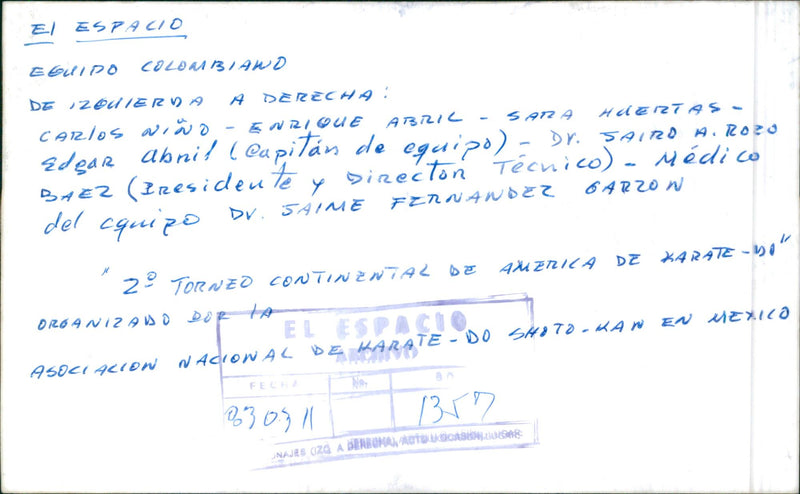 El ESPACIO
EQUIPO COLOMBIANO
DE IZQUIERDA A DERECHA:
CARLOS NIÑO - ENRIQUE ABRIL - SARA HUERTAS -
Edgar Abril (Capitán de equipo) - Dr. JAIRO A. ROZO
BAEZ (Presidente y Director Técnico) - Médico
del equipo Dr. JAIME FERNANDEZ GARZON
"2º TORNEO CONTINENTAL DE AMERICA DE KARATE-DO"
ORGANIZADO POR LA
ASOCIACION NACIONAL DE KARATE-DO SHOTO-KAN EN MEXICO
EL ESPACIO
ARCHIVO
FECHA No.
830311 1357
NAJES (IZQ. A DERECHA), ACTO U OCASION, LUGAR